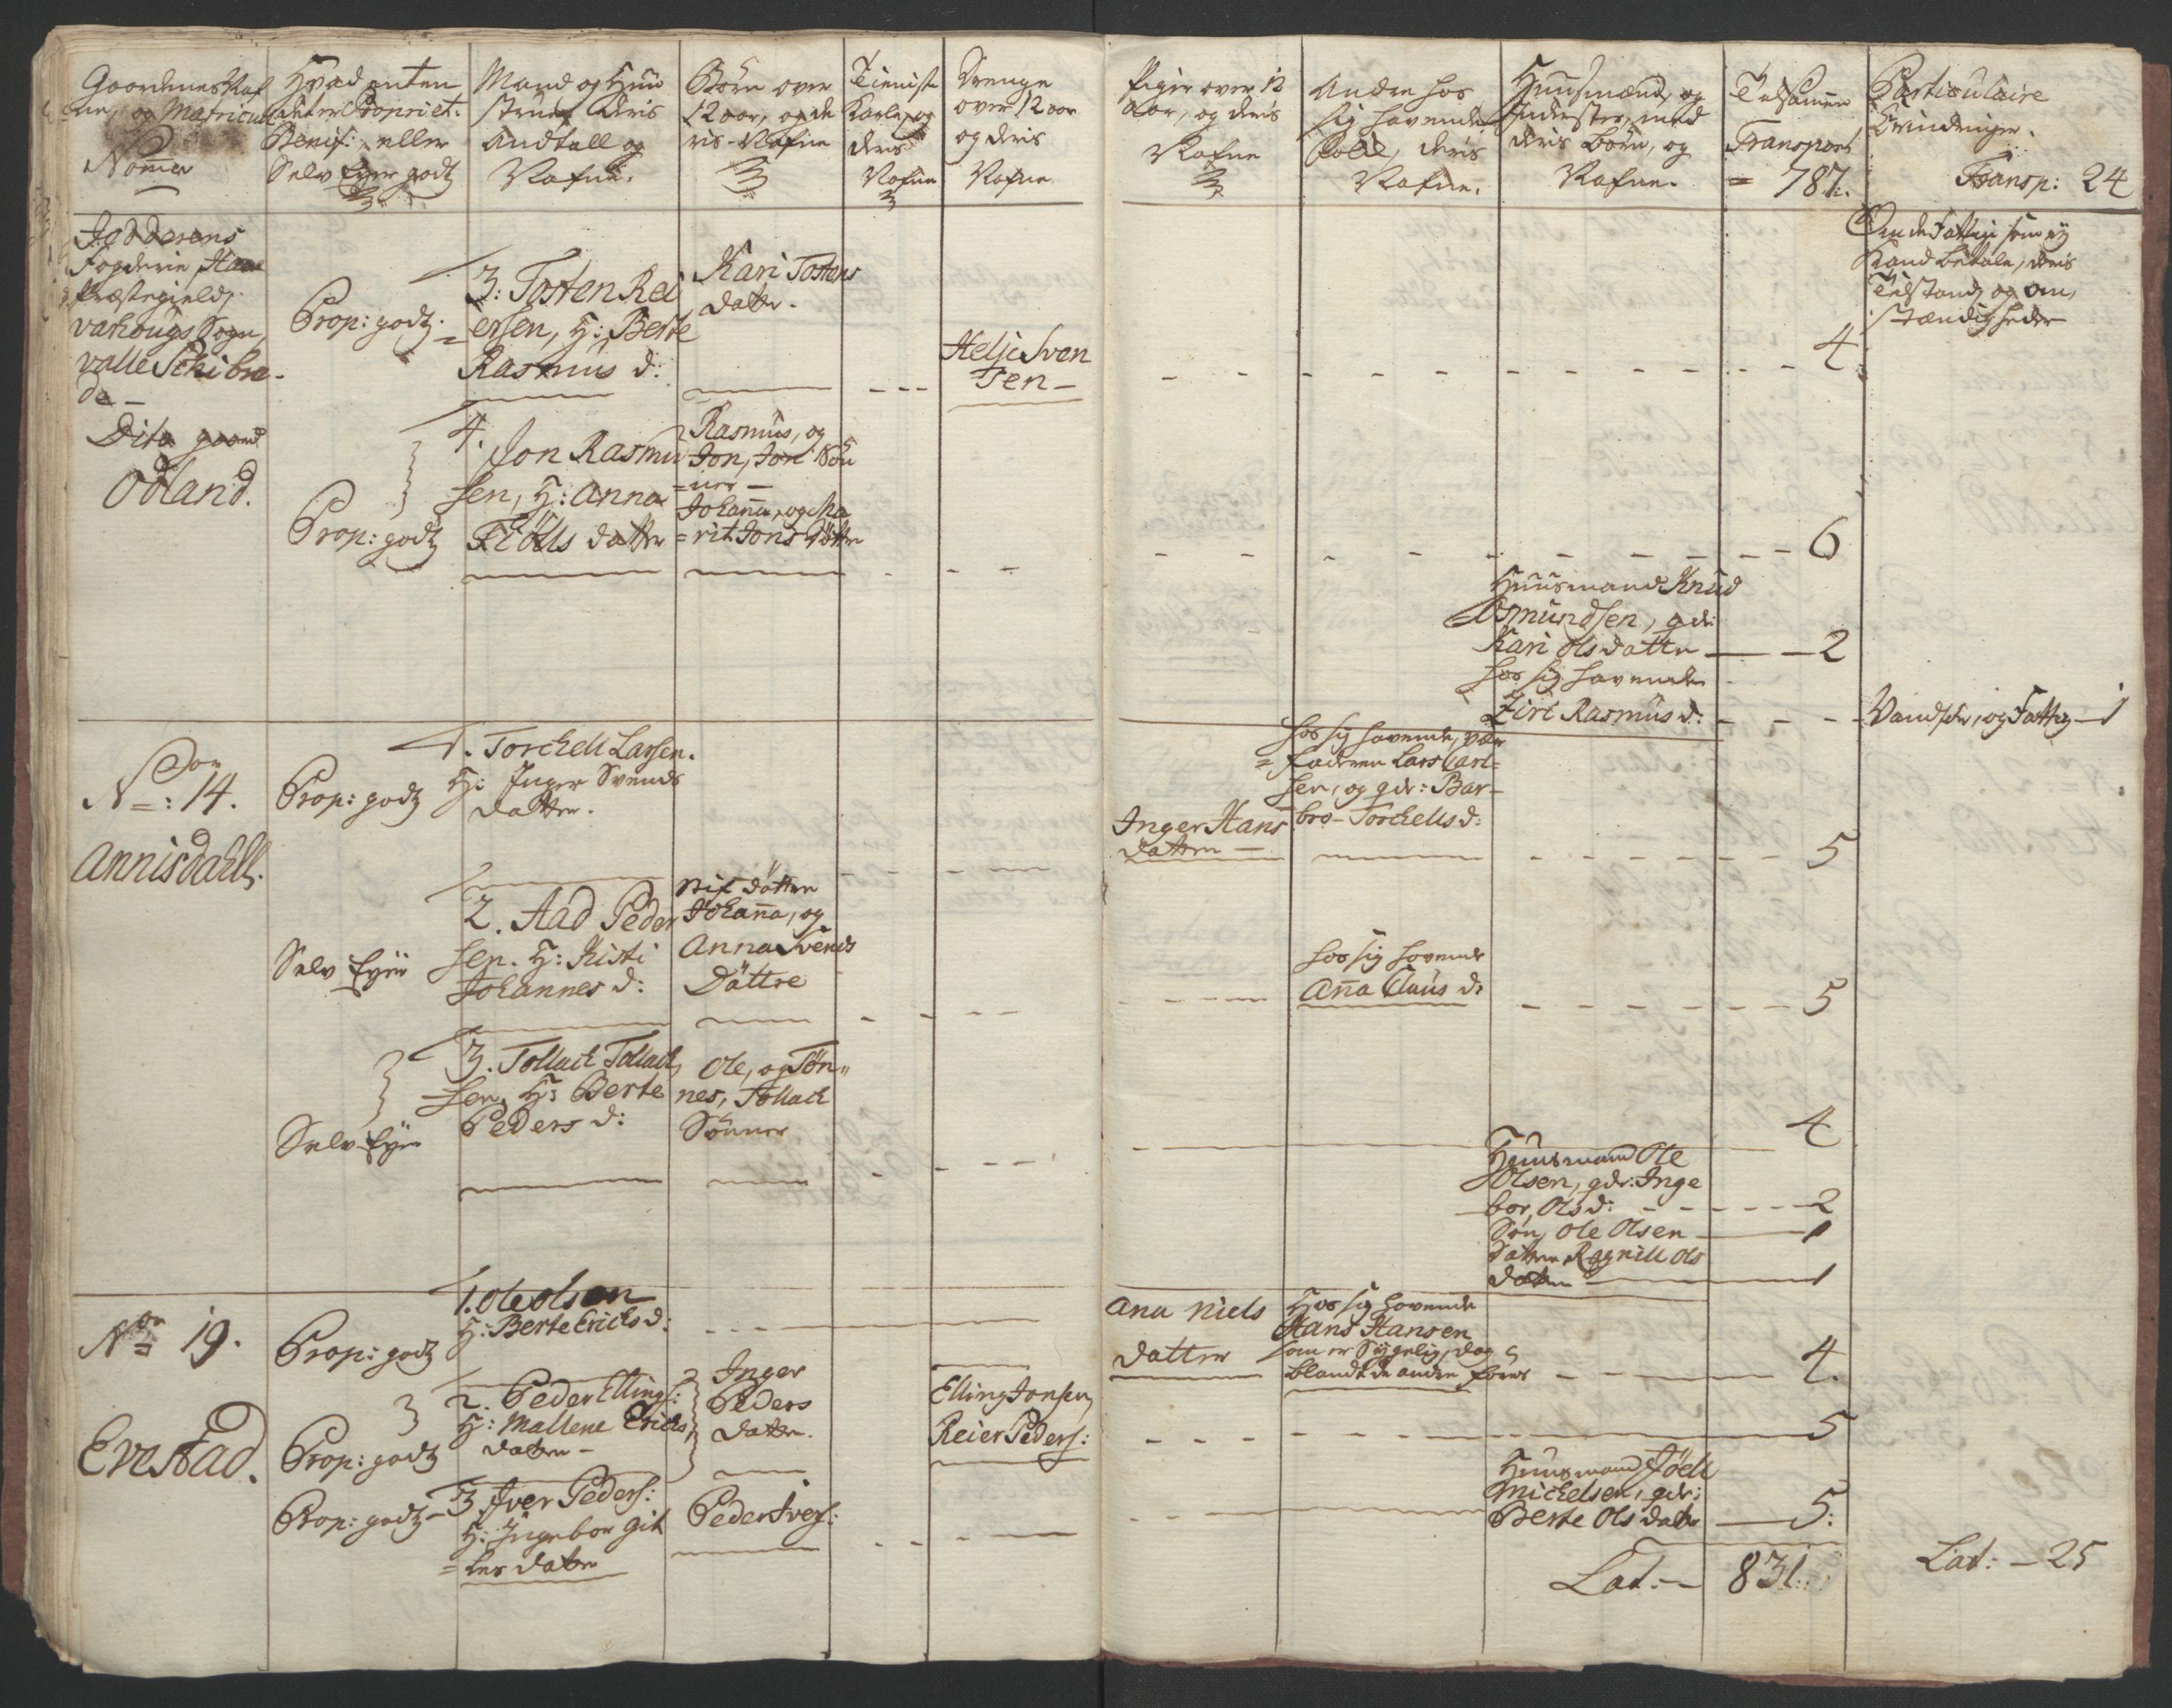 Gaardenes Naf
ne, og Matricul
No̅mer
Hvad enten
det er Propriet:
Benif:, eller
Selv Eyer godz
Mand og Hus
strue deris
Andtall og
Nafne.
Børn over
12 aar, og de
ris Nafne
Tieniste
Karle, og
deris
Nafne
Drenge
over 12 aar
og deris
Nafne
Piger over 12
aar, og deris
Nafne
Andre hos
sig havende
Folk, deris
Nafne.
Huusmænd, og
Inderster, med
deris børn, og
Nafne.
Tilsamen
Transport
= 787:
Particulaire
Erindringer.
Transp: 24
Jedderens
Fogderie, Haae
Præstegield,
Varhougs Sogn,
Valle Schibre-
de -
Dito gaard
Odland.
Prop: godz
3: Tosten Rei
ersen, H: Berte
Rasmus d:
Kari Tostens
datter.
Helje Sven
sen -
4
Om de Fattige som ey
Kand betale, deris
Tilstand og om,
stændigheder
Prop: godz
4. Jon Rasmu
sen, H: Anna
Tiølls datter
Rasmus, og
Jon, Jon Søn
=ner -
Johanna, og Ma
=rit Jons døttr
6
Huusmand Knud
Osmundsen, qdr:
Kari Olsdatter — 2
hos sig havende
Ziri Rasmus d: - - -
Vandfør, og Fattig — 1
No: 14.
Annisdahll.
Prop: godz
1. Torchell Larsen.
H: Inger Svends
datter.
Inger Hans
datter —
hos sig havende, vær
= faderen Lars Carl=
sen, og qdr: Bar-
bro Torchells d:
5
Selv Eyer
2. Aad Peder
sen. H: Kisti
Johannes d:
Stif døttre
Johanna, og
Anna Svends
Døttre
hos sig havende
Anna Claus d:
5
Selv Eyer
3. Tollack Tollack,
sen, H: Berte
Peders d:
Ole, og Tøn„
nes, Tollack
Sønner
4
Huusmand Ole
Olsen, qdr: Inge
bor, Ols d: - - - 2
Søn, Ole Olsen — 1
datter Ragnill Ols
datter — 1
No 19.
Evestad.
Prop: godz
1. Ole Olsen
H: Berte Erichs d:
Ana Niels
datter
Hos sig havende
Hans Hansen
som er Sygelig, dog
blandt de andre føres
4.
Prop: godz
2. Peder Ellings:
H: Mallene Erichs,
datter -
Inger
Peders
datter.
Elling Jonsen,
Reier Peders:
5
Prop: godz
3 Iver Peders:
H: Ingebor Git
=les datter
Peder Ivers:
Huusmand Jøell
Michelsen, qdr:
Berte Ols datter — 5:
Lat: — 831:
Lat: — 25